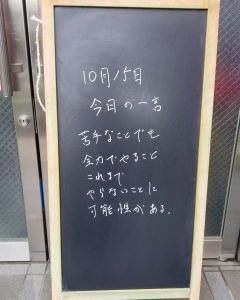 10月15日
今日の一言
苦手なことでも
全力でやること
これまで
やらないことに
可能性がある。